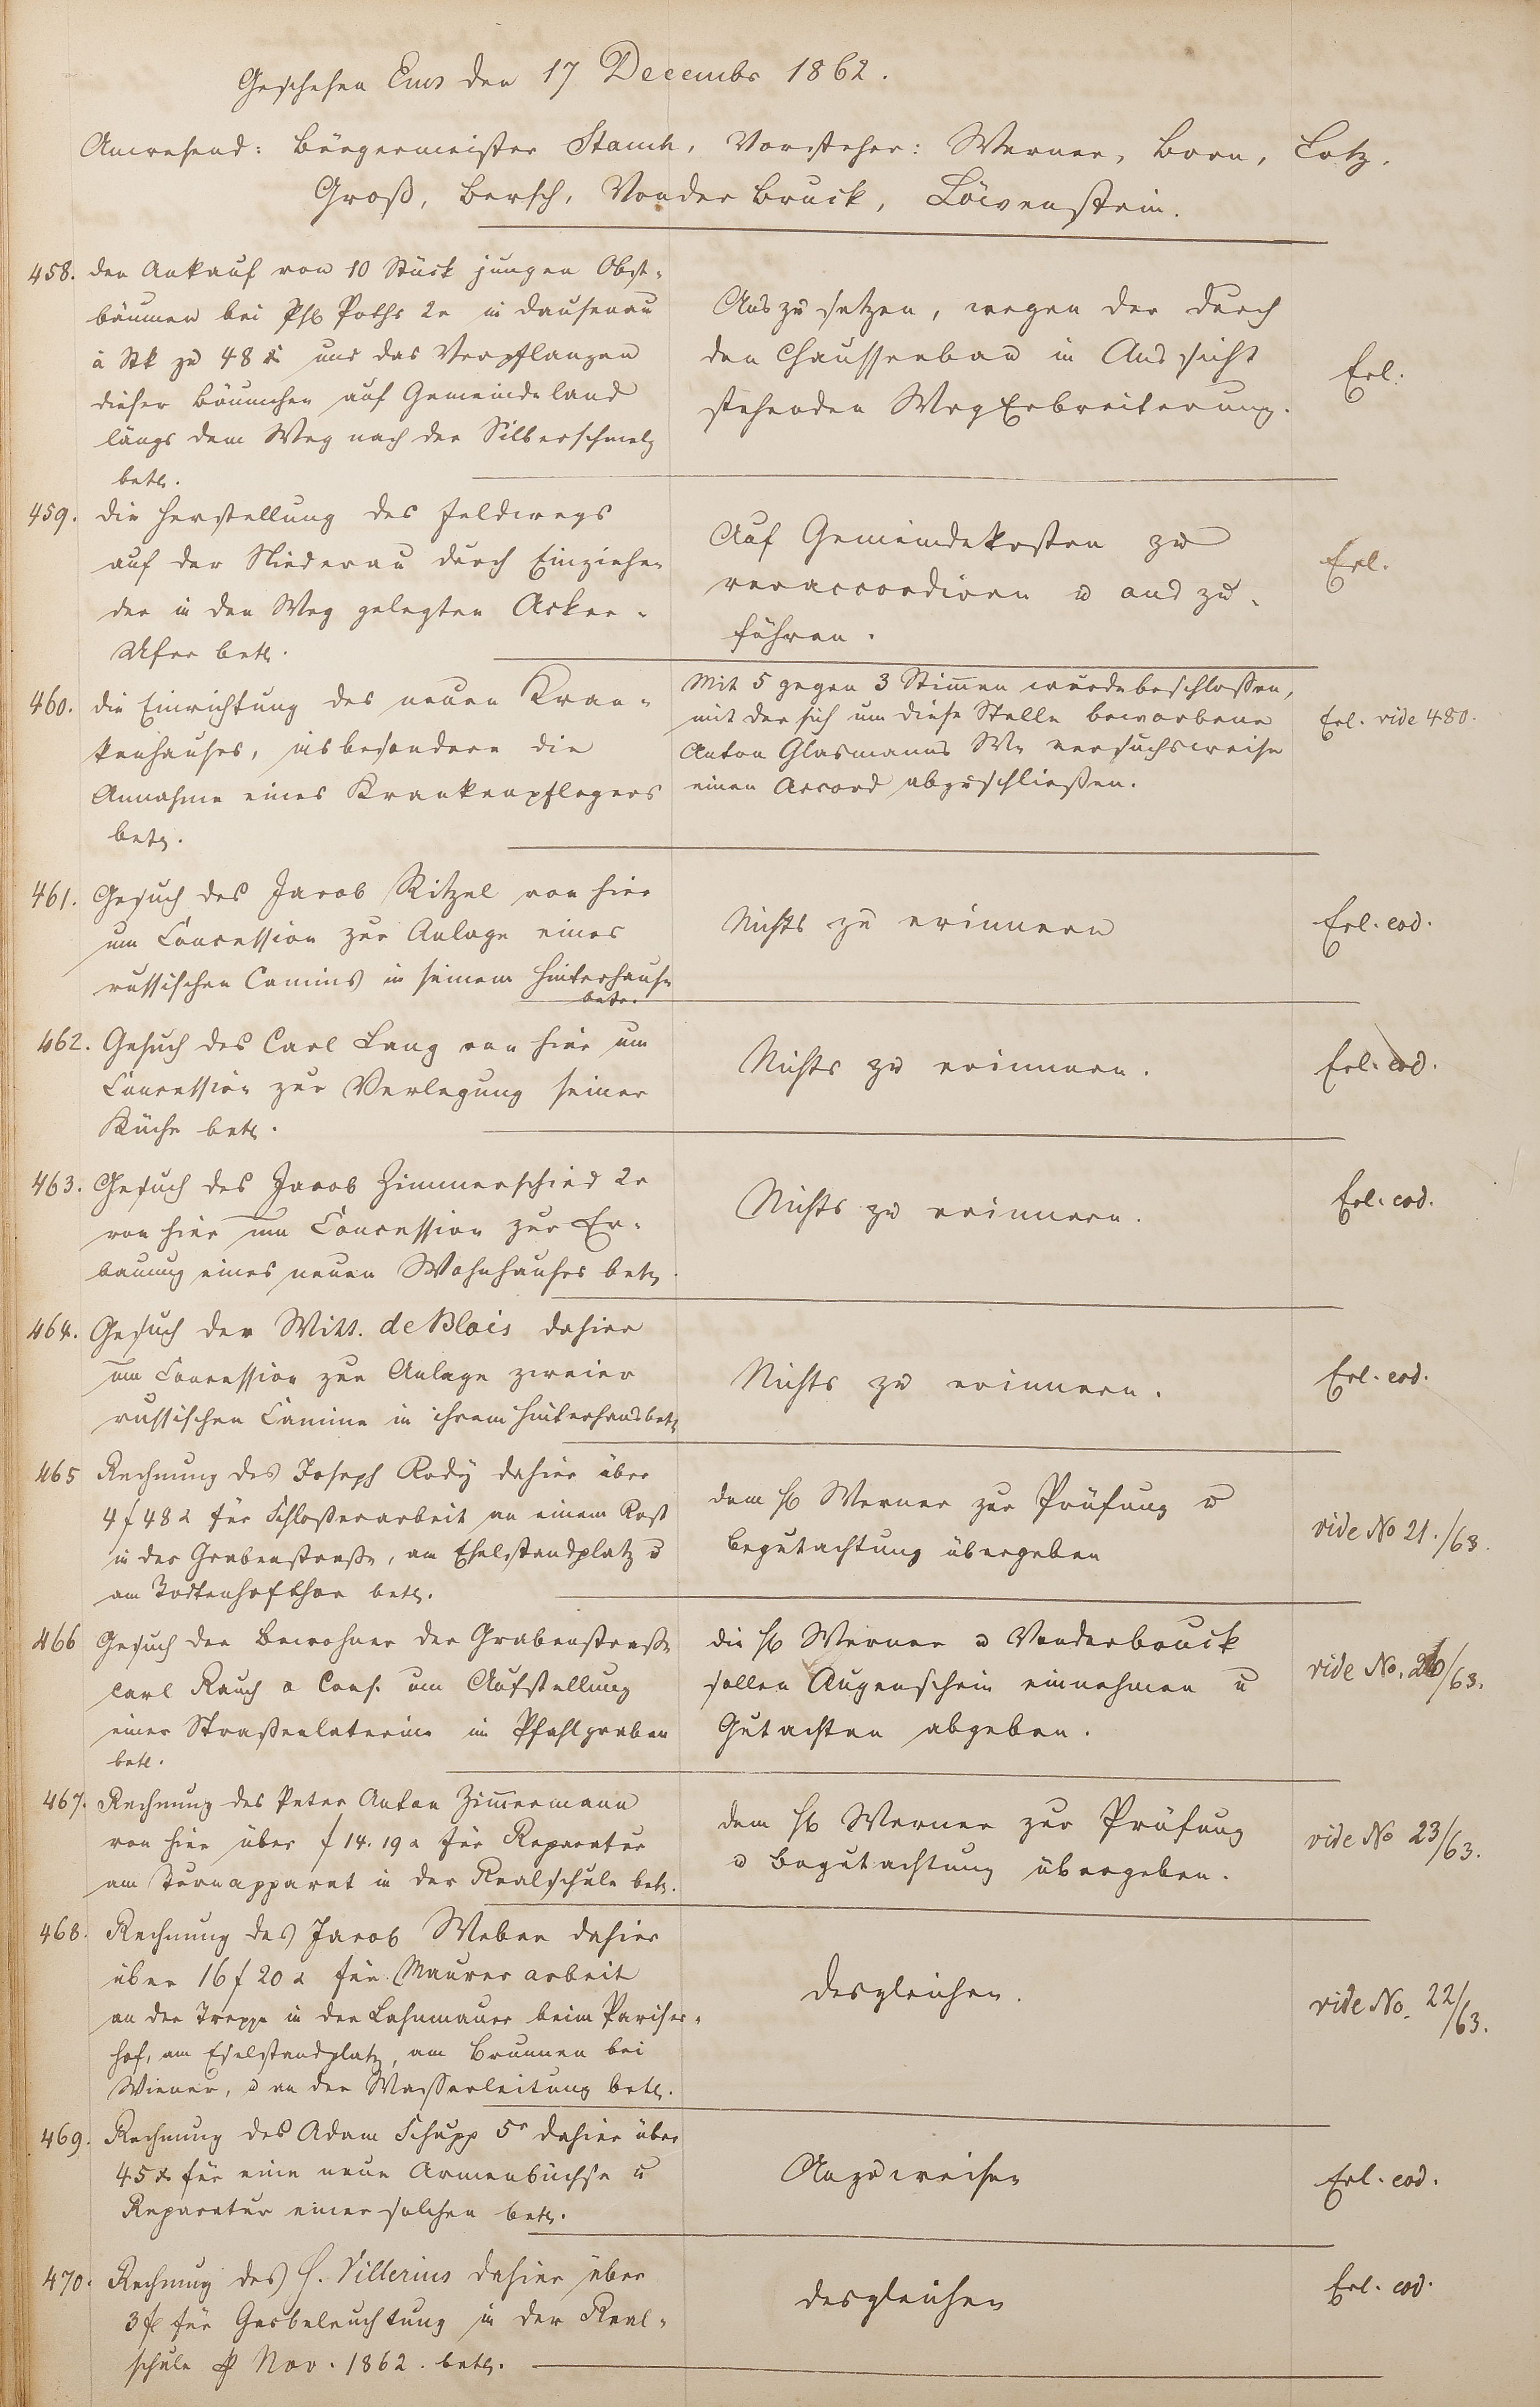 Geschehen Ems den 17 Decembr 1862.
Anwesend: Bürgermeister Stamm, Vorsteher: Werner, Born, Lotz,
Groß, Bersch, Vonderbruck, Löwenstein.
458. den Ankauf von 10 Stück jungen Obst-
bäumen bei Phl Poths 2r in Dausenau
à Stk zu 48 x und das Verpflanzen
dieser Bäumchen auf Gemeindeland
längs dem Weg nach der Silberschmelz
betr.
Auszusetzen, wegen der durch
den Chausseebau in Aussicht
stehenden Wegerbreiterung.
Erl.
459. die Herstellung des Feldwegs
auf der Niederau durch Einziehen
der in den Weg gelegten Acker-
Ufer betr.
Auf Gemeindekosten zu
veraccordiren u auszu-
führen.
Erl.
460. die Einrichtung des neuen Kran-
kenhauses, insbesondere die
Annahme eines Krankenpflegers
betr.
Mit 5 gegen 3 Stimmen wurde beschlossen,
mit der sich um diese Stelle beworbene
Anton Glasmanns We versuchsweise
einen Accord abzuschließen.
Erl. vide 480.
461. Gesuch des Jacob Ritzel von hier
um Concession zur Anlage eines
russischen Camins in seinem Hinterhause
betr.
Nichts zu erinnern
Erl. eod.
462. Gesuch des Carl Lang von hier um
Concession zur Verlegung seiner
Küche betr.
Nichts zu erinnern.
Erl. eod.
463. Gesuch des Jacob Zimmerschied 2r
von hier um Concession zur Er-
bauung eines neuen Wohnhauses betr.
Nichts zu erinnern.
Erl. eod.
464. Gesuch der Witt. de Blois dahier
um Concession zur Anlage zweier
russischen Camine in ihrem Hinterhaus betr
Nichts zu erinnern.
Erl. eod.
465 Rechnung des Joseph Rody dahier über
4 f 48 x für Schlosserarbeit an einem Rost
in der Grabenstraße, am Eselstandplatz u
am Todtenhofthor betr.
dem H Werner zur Prüfung u
Begutachtung übergeben
vide No 21./63.
466 Gesuch der Bewohner der Grabenstraße
Carl Rauch & Cons. um Aufstellung
einer Straßenlaterne im Pfahlgraben
betr.
die H Werner u Vonderbruck
sollen Augenschein einnehmen u
Gutachten abgeben.
vide No. 26/63.
467. Rechnung des Peter Anton Zimmermann
von hier über f 14. 19 x für Reparatur
am Turnapparat in der Realschule betr.
dem H Werner zur Prüfung
u Begutachtung übergeben.
vide No 23/63.
468. Rechnung des Jacob Weber dahier
über 16 f 20 x für Maurerarbeit
an der Treppe in der Lahnmauer beim Pariser-
hof, am Eselstandplatz, am Brunnen bei
Wiener, u an der Wasserleitung betr.
desgleichen.
vide No. 22/63.
469. Rechnung des Adam Schupp 5r dahier über
45 x für eine neue Armenbüchse u
Reparatur einer solchen betr.
Anzuweisen
Erl. eod.
470. Rechnung des H. Villerius dahier über
3 f für Gasbeleuchtung in der Real-
schule p Nov. 1862. betr.
desgleichen
Erl. eod.